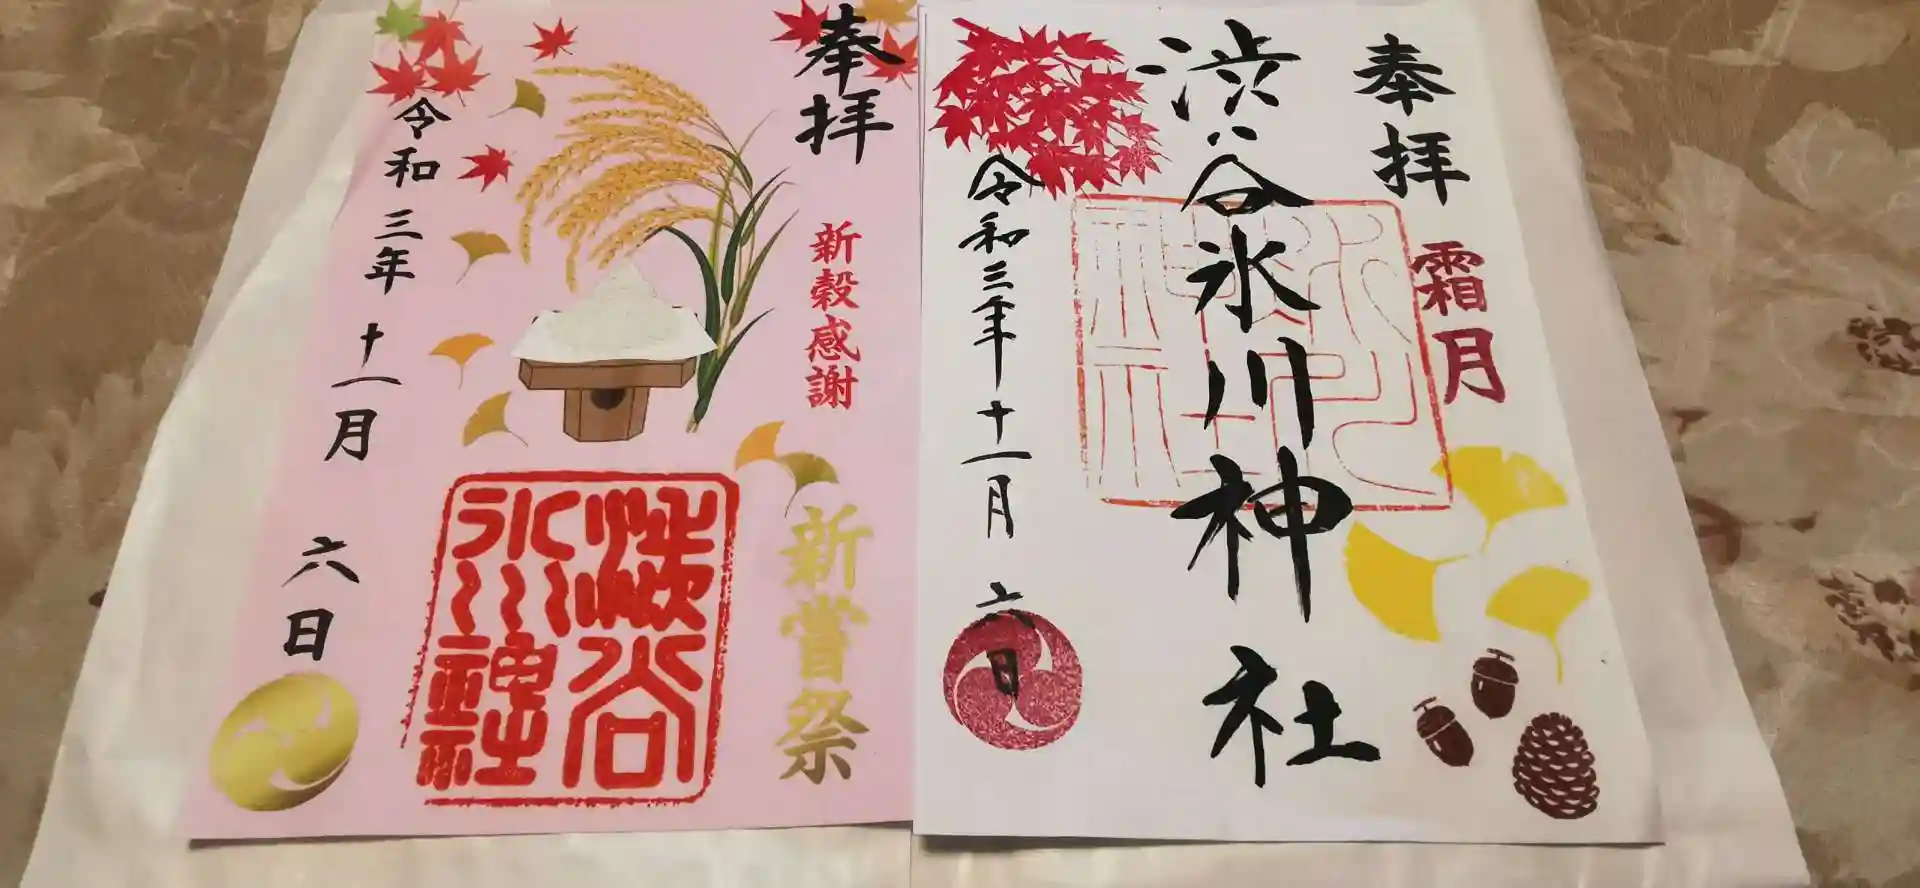 奉拝
霜月
渋谷氷川神社
令和三年十一月六日
奉拝
新穀感謝
新嘗祭
渋谷氷川神社
令和三年十一月六日